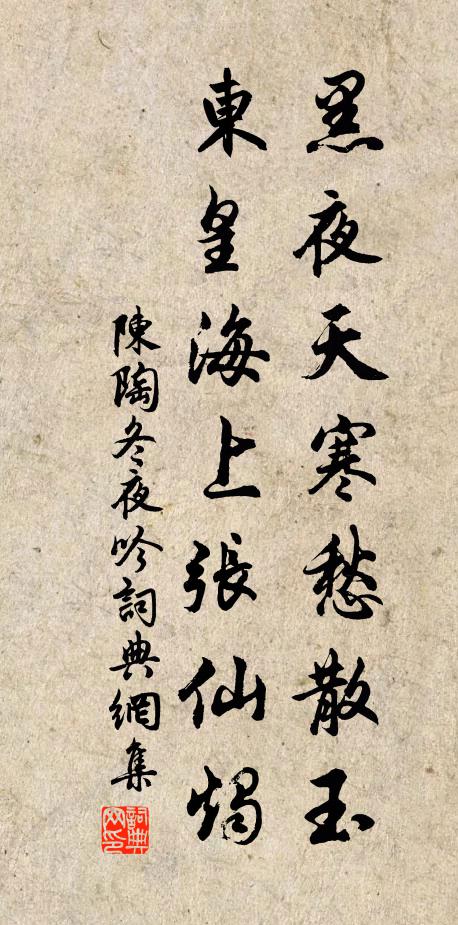 黑夜天寒愁散玉
東皇海上張仙燭
陳陶冬夜吟詞典網集
詞典網印